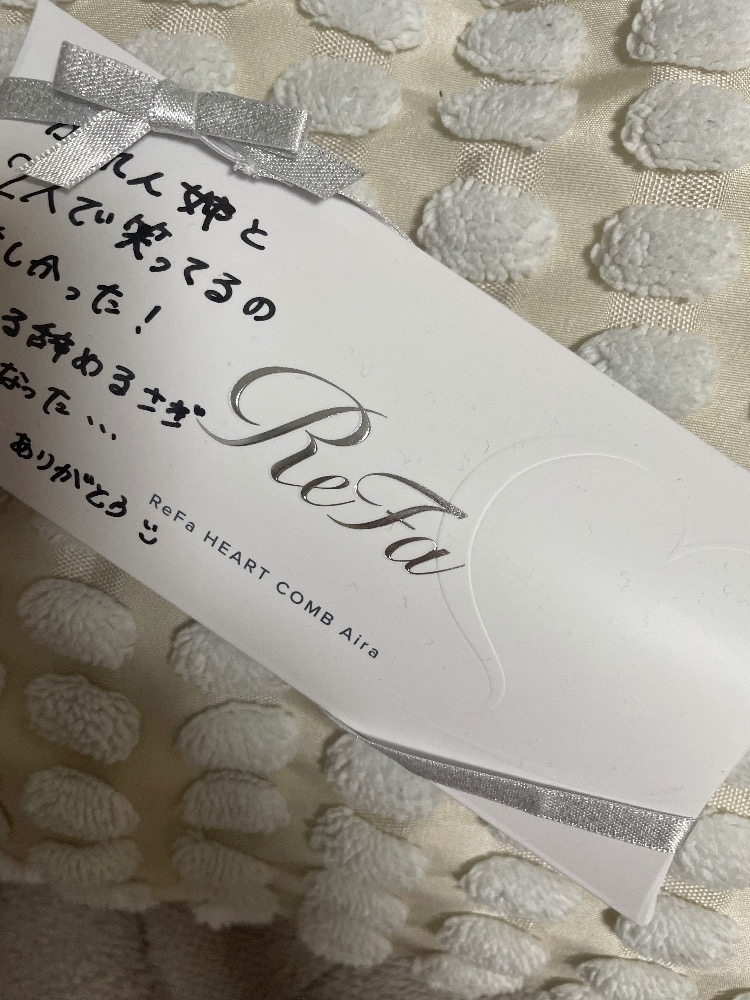 れん姉と
人で笑ってるの
しかった！
る辞めるさぎ
なった…
ありがとう
ReFa
ReFa HEART COMB Aira